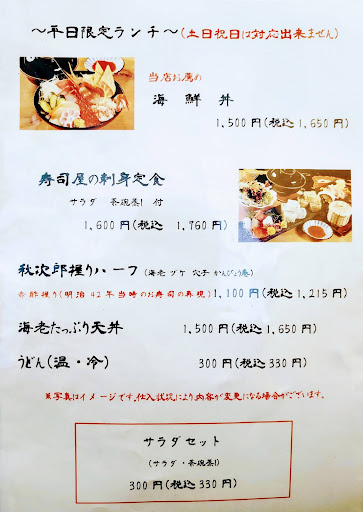 ～平日限定ランチ～(土日祝日は対応出来ません)
当店お薦め
海鮮丼
1,500円(税込 1,650円)
寿司屋の刺身定食
サラダ 茶碗蒸し 付
1,600円(税込 1,760円)
秋次郎握りハーフ(海老 ヅケ 穴子 かんぴょう巻)
赤酢握り(明治42年当時のお寿司の再現)1,100円(税込 1,215円)
海老たっぷり天丼 1,500円(税込 1,650円)
うどん(温・冷) 300円(税込 330円)
※写真はイメージです。仕入状況により、内容が変更になる場合がございます。
サラダセット
(サラダ・茶碗蒸し)
300円(税込 330円)